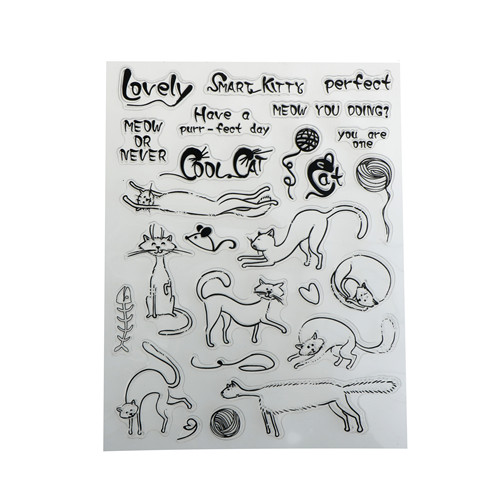 Lovely
SMART KITTY
perfect
Have a
purr-fect day
MEOW YOU DOING?
MEOW
OR
NEVER
you are
one
COOL CAT
Cat